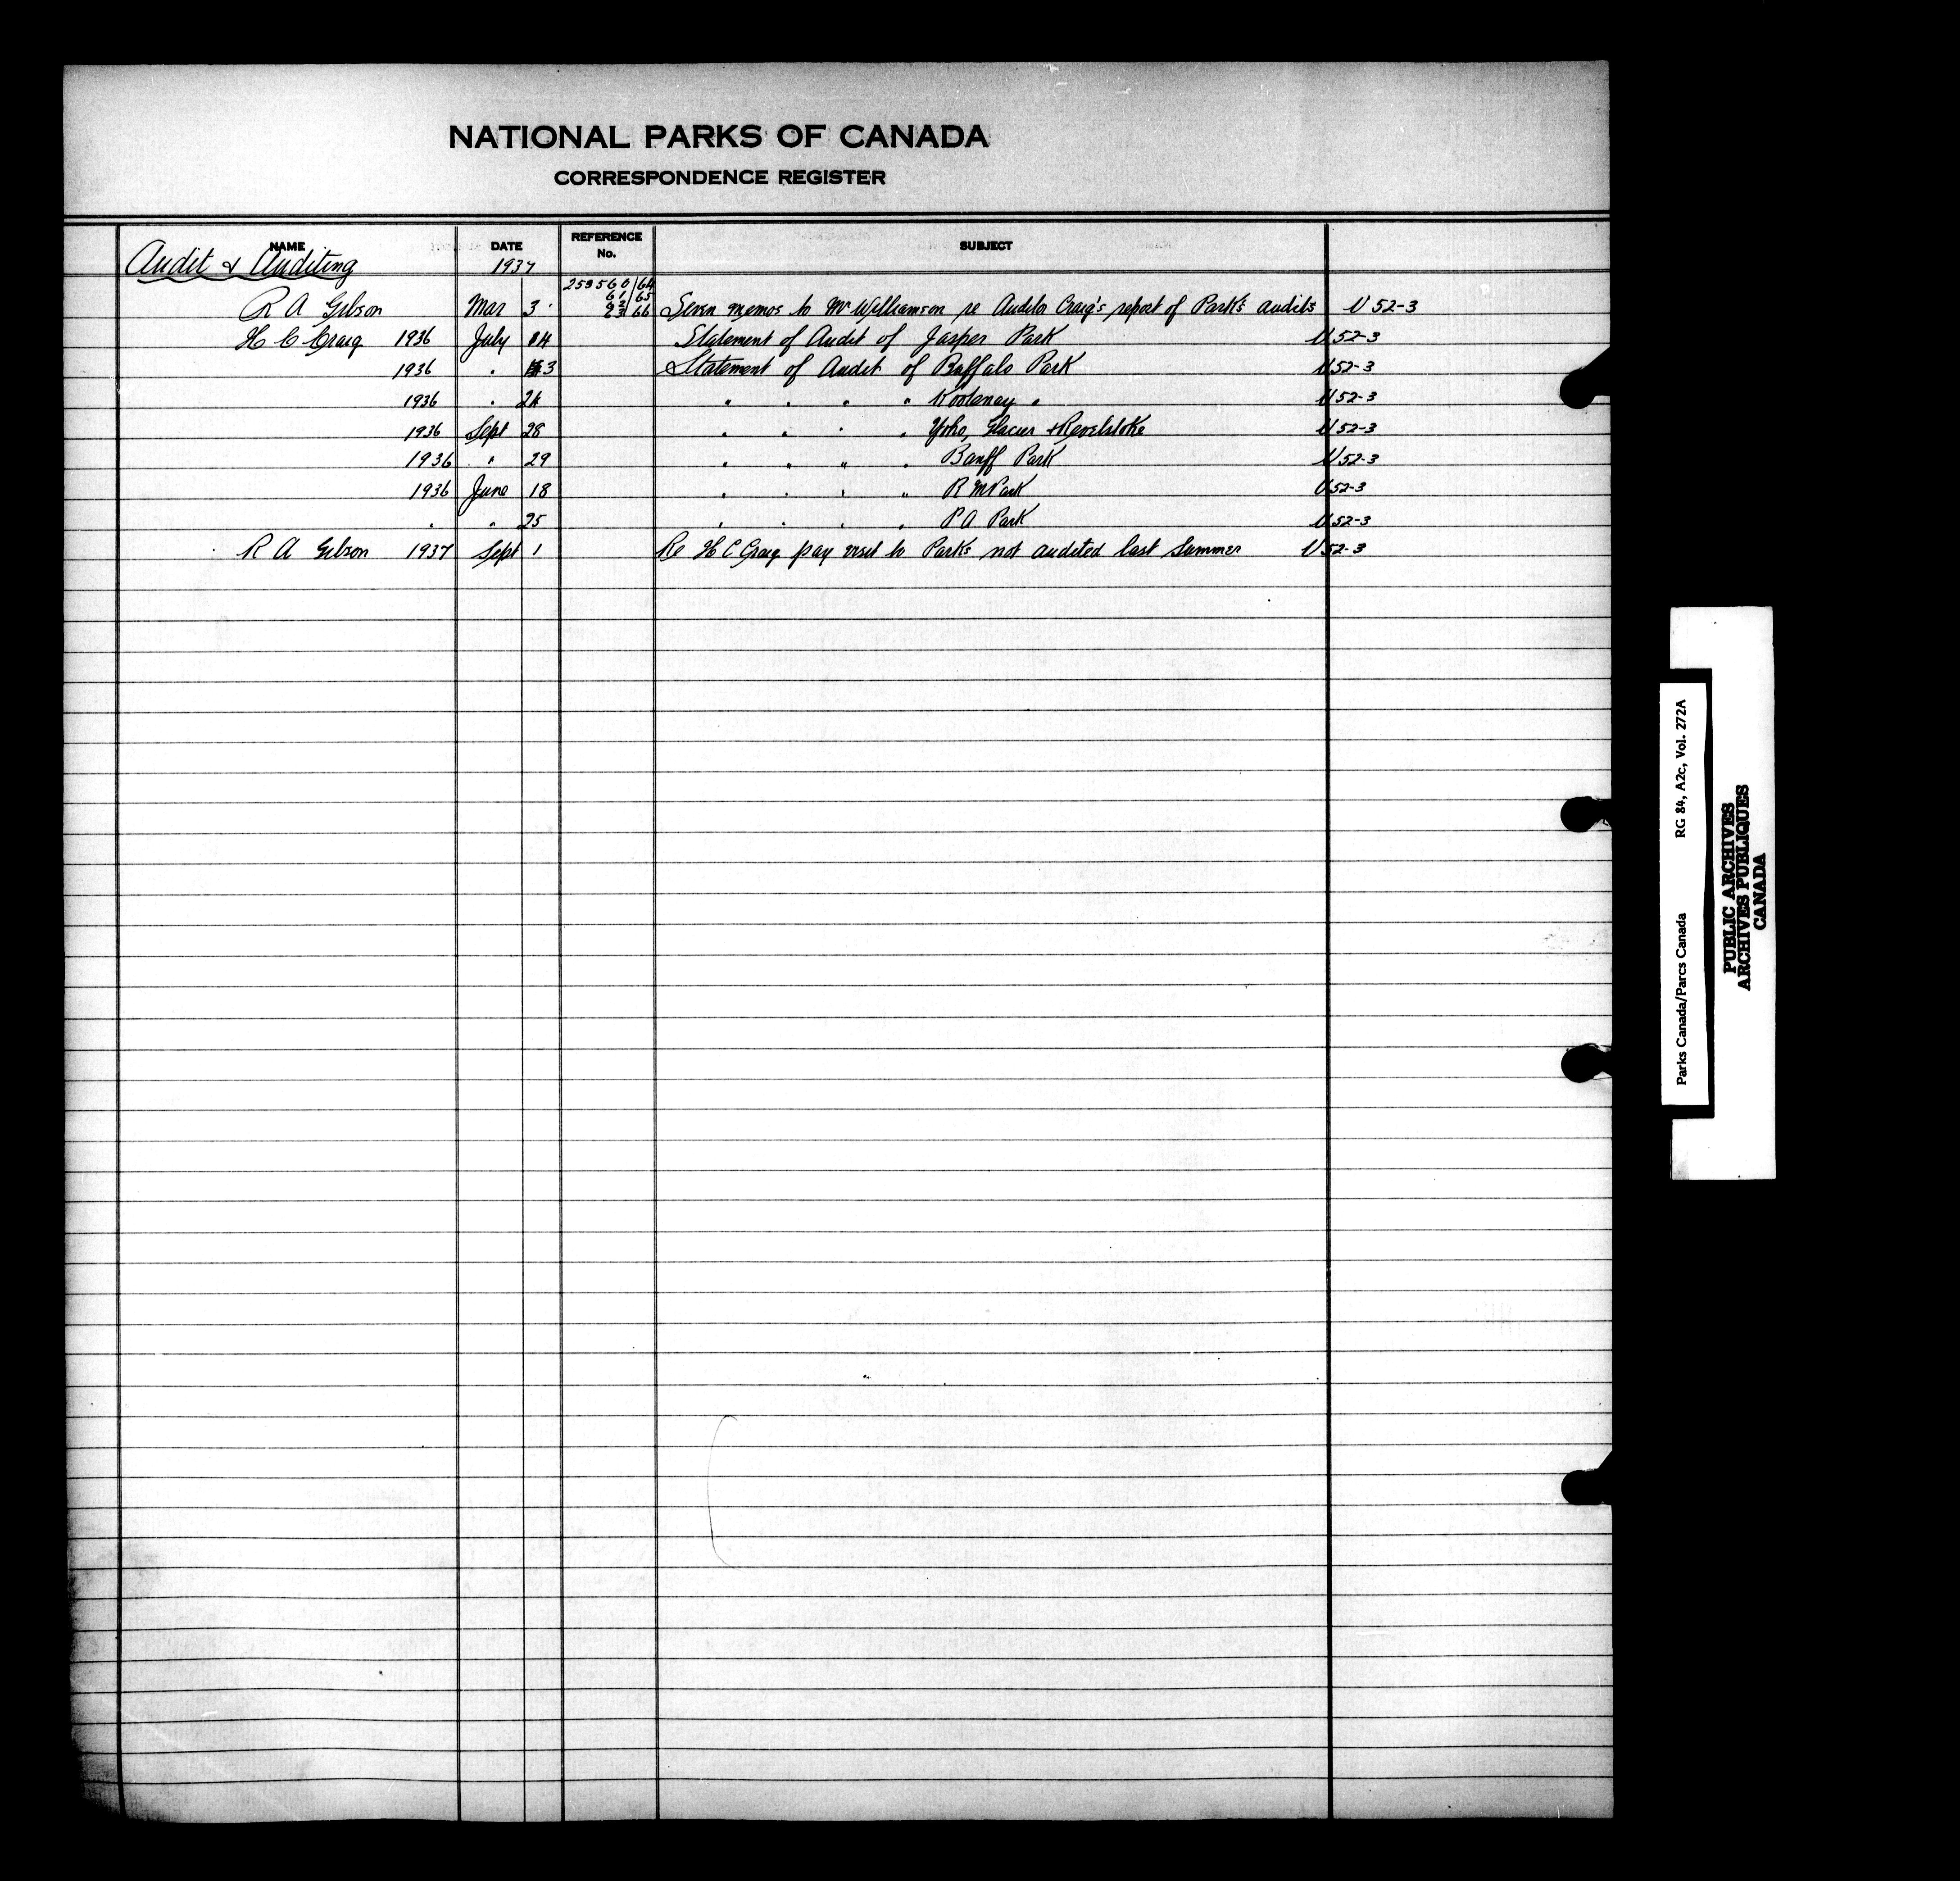 NATIONAL PARKS OF CANADA
CORRESPONDENCE REGISTER
NAME DATE REFERENCE No. SUBJECT
Audit & Auditing 1937
253560/64
61/65
R A Gibson Mar 3 62/66 Seven memos to Mr Williamson re Auditor Craig's report of Park's audits U 52-3
63
H C Craig 1936 July 14 Statement of Audit of Jasper Park U 52-3
1936 " 3 Statement of Audit of Buffalo Park U 52-3
1936 " 24 " " " " Kootenay " U 52-3
1936 Sept 28 " " " " Yoho, Glacier & Revelstoke U 52-3
1936 " 29 " " " " Banff Park U 52-3
1936 June 18 " " " " R M Park U 52-3
" " 25 " " " " P A Park U 52-3
R A Gibson 1937 Sept 1 Re H C Craig pay visit to Parks not audited last summer U 52-3
Parks Canada/Parcs Canada RG 84, A2c, Vol. 272A
PUBLIC ARCHIVES
ARCHIVES PUBLIQUES
CANADA